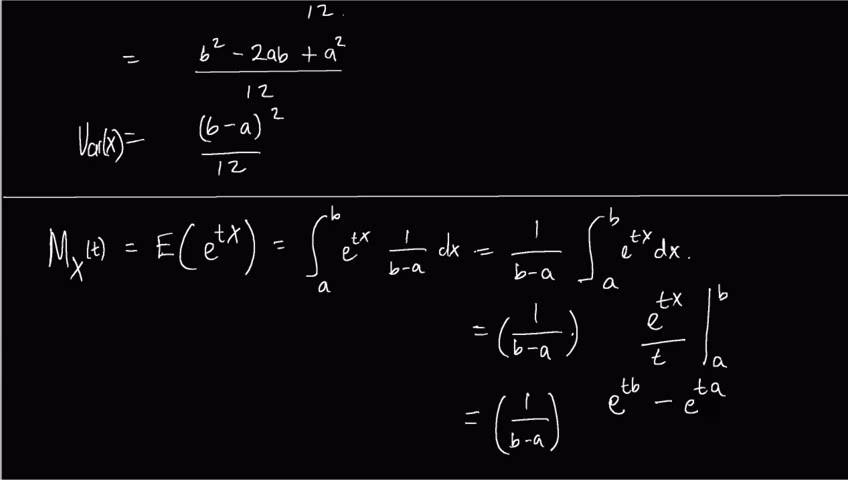 12.
= b² - 2ab + a² / 12
Var(X) = (b-a)² / 12
M_X(t) = E(e^{tX}) = ∫_a^b e^{tx} 1/(b-a) dx = 1/(b-a) ∫_a^b e^{tx} dx.
= (1/(b-a).) e^{tx}/t |_a^b
= (1/(b-a)) e^{tb} - e^{ta}